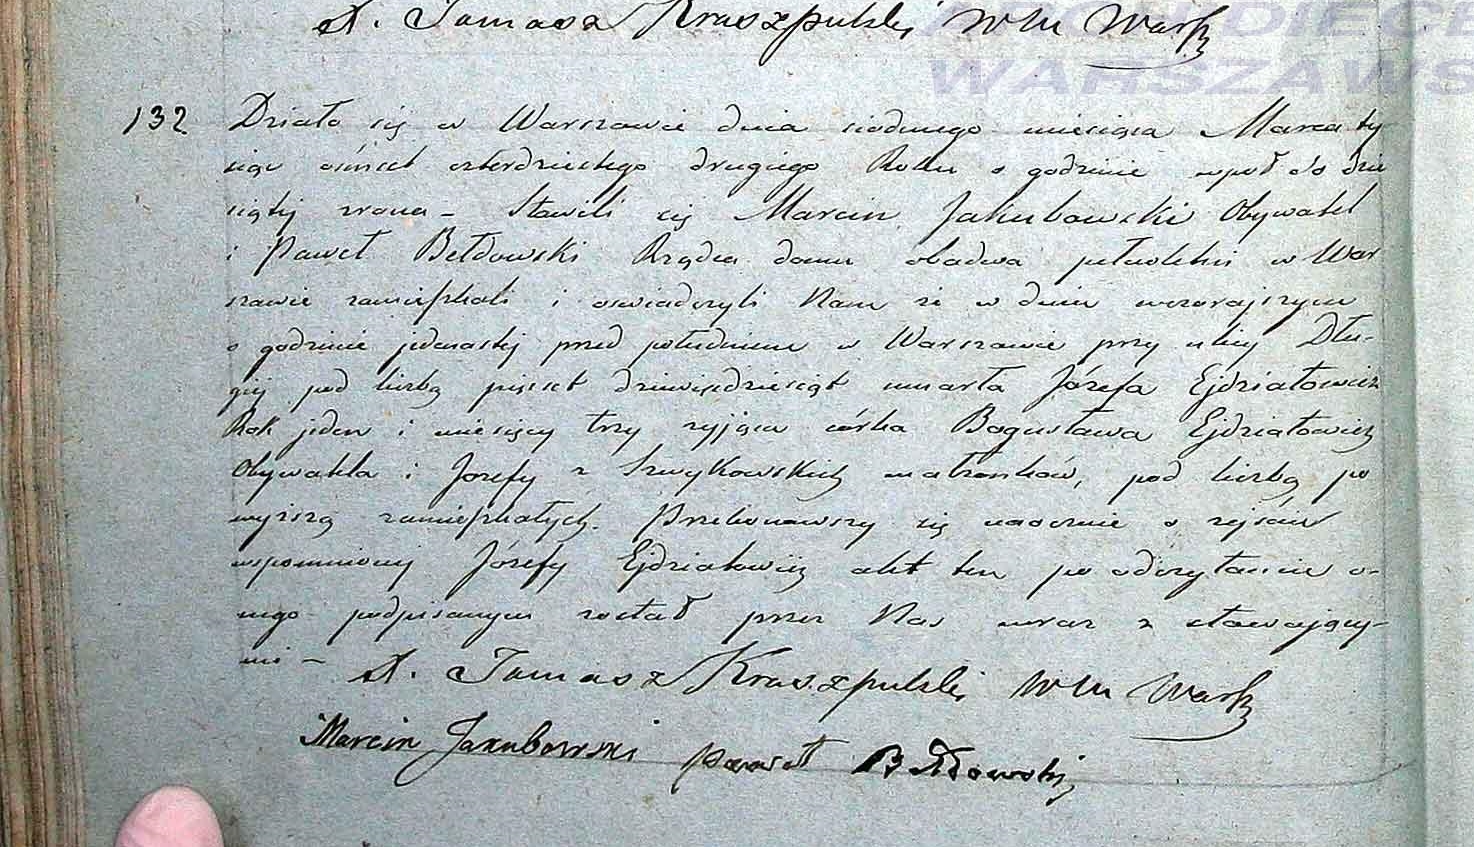 X. Tomasz Kraszpulski WKu Warsz
ARCHIDIECE
WARSZAWS
132 Działo się w Warszawie dnia siodmego miesiąca Marca ty-
siąc ośmset czterdziestego drugiego Roku o godzinie wpół do dzie
siątej zrana – Stawili się Marcin Jakubowski Obywatel
i Paweł Bełdowski Rządca domu obadwa pełnoletni w War
szawie zamieszkali i oswiadczyli Nam że w dniu wczorajszym
o godzinie jedenastej przed południem w Warszawie przy ulicy Dłu-
giej pod liczbą pięćset dziewięćdziesiąt umarła Józefa Ejdziatowicz
Rok jeden i miesięcy trzy żyjąca córka Bogusława Ejdziatowicz
Obywatela i Józefy z Szwykowskich małżonków, pod liczbą po
wyższą zamieszkałych. Przekonawszy się naocznie o zejściu
wspomnionej Józefy Ejdziatowicz akt ten po odczytaniu o-
nego podpisanym został przez Nas wraz z stawający-
mi –
X. Tomasz Kraszpulski WKu Warsz
Marcin Jakubowski Paweł Bełdowski